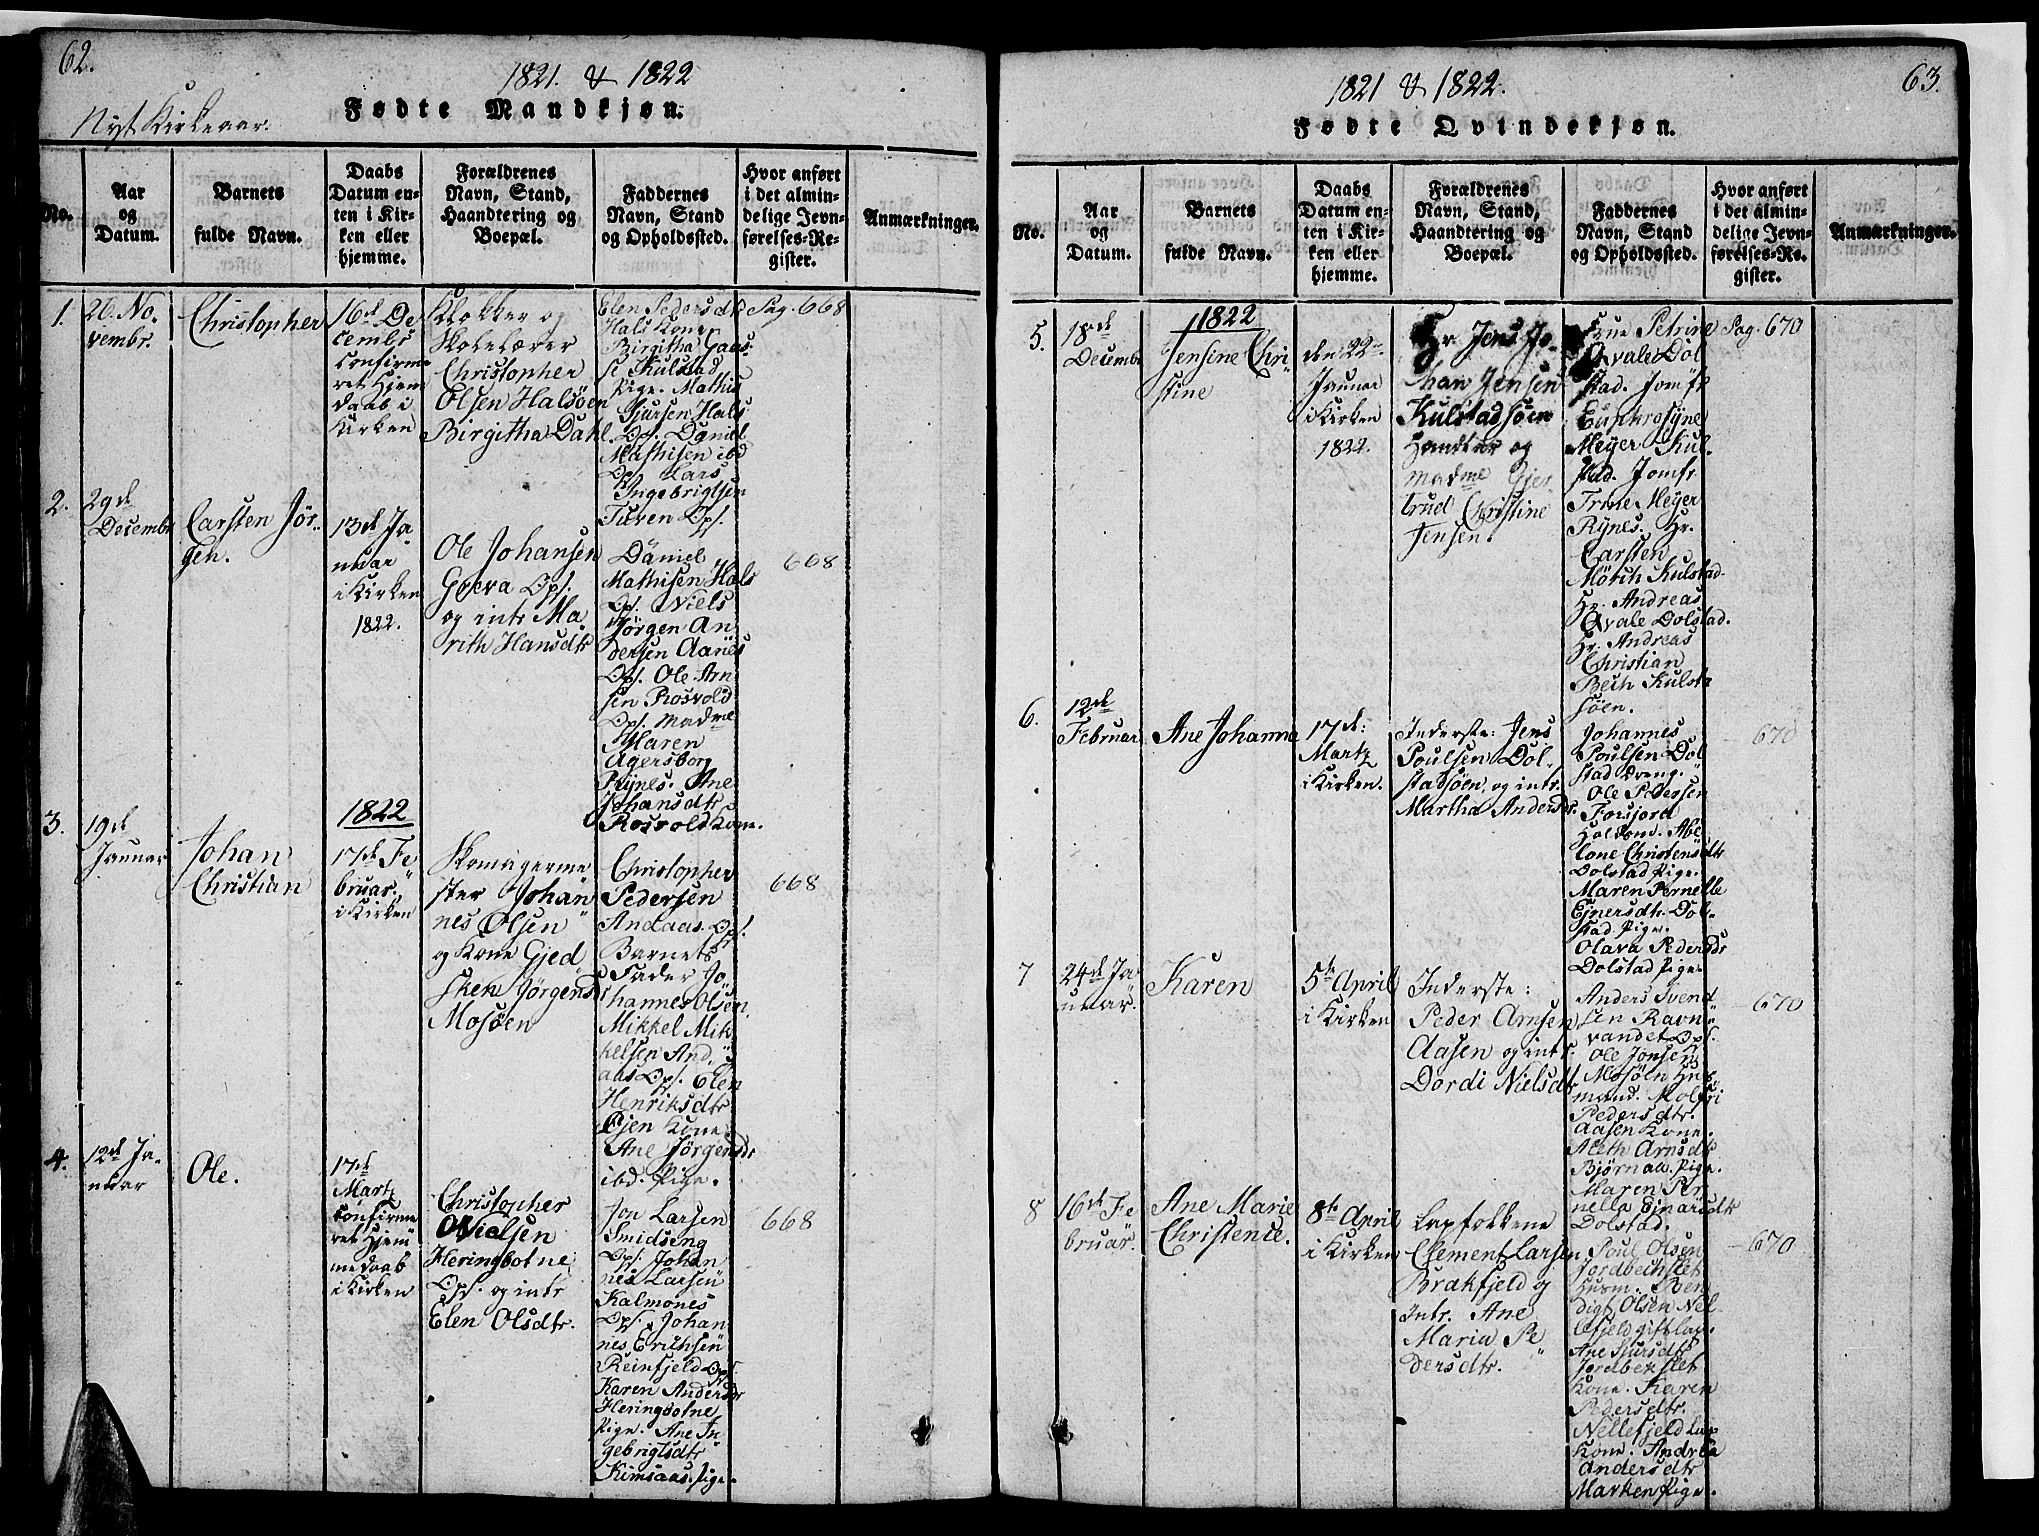 62.
1821. & 1822
Nyt Kirkeaar.
Fødte Mandkjøn.
No.
Aar
og
Datum.
Barnets
fulde Navn.
Daabs
Datum en-
ten i Kir-
ken eller
hjemme.
Forældrenes
Navn, Stand,
Haandtering og
Boepæl.
Faddernes
Navn, Stand
og Opholdssted.
Hvor anført
i det almin-
delige Jevn-
førelses-Re-
gister.
Anmærkninger.
1.
26. No-
vembr.
Christopher
16de De
cembr
confirme
ret Hjem
daab i
Kirken
Klokker og
Skolelærer
Christopher
Olsen Halsøen
Birgitha Dahl.
Elen Pedersdtr
Hals Kone
Birgitha Gaas
Kulstad
Pige. Mathis
Sjursen Hals
Ops. Daniel
Mathisen ibd
Ops. Lars
Ingebrigtsen
Tuven Ops.
Pag. 668
2.
29de
Decembr
Carsten Jør-
gen.
13de Ja
nuar
i Kirken
1822.
Ole Johansen
Ops.
og intr Ma
rith Hansdtr
Daniel
Mathisen Hals
Ops. Niels
Jørgen An
dersen Aanes
Ops. Ole Arn
sen Rosvold
Ops. Madme
Maren
Agersborg
Rynes. Ane
Johansdtr
Rosvold Kone.
668
3.
19de
Januar
Johan
Christian
1822
17de Fe
bruar.
i Kirken
Skomagerme
ster Johan
nes Olsen
og Kone Gjed
sken Jørgensdr
Mosøen
Christopher
Pedersen
Andaas Ops.
Barnets
Fader Jo
hannes Olsen
Mikkel Mik
kelsen And
aas Ops. Elen
Henriksdtr
Ejen Kone
Ane Jørgensdr
ibd. Pige.
668
4.
12de Ja-
nuar
Ole.
17de
Martz
confirme
ret Hjem
medaab
i Kirken
Christopher
Nielsen
Heringbotne
Ops. og intr
Elen Olsdtr.
Jon Larsen
Smidseng
Ops. Johan
nes Larsen
Kalmones
Ops. Johan
nes Erichsen
Reinfjeld Ops
Karen Andersdr
Heringbotne
Pige. Ane In
gebrigtsdtr
Kimsaas. pige.
668
63.
1821 & 1822.
Fødte Qvindekjøn.
No.
Aar
og
Datum.
Barnets
fulde Navn.
Daabs
Datum en-
ten i Kir-
ken eller
hjemme.
Forældrenes
Navn, Stand,
Haandtering og
Boepæl.
Faddernes
Navn, Stand
og Opholdssted.
Hvor anført
i det almin-
delige Jevn-
førelses-Re-
gister.
Anmærkninger.
5.
18de
Decembr
1822
Jensine Chri
stine
den 22de
Januar
i Kirken
1822.
Hr Jens Jo-
han Jensen
Kulstadsøen
Handler og
Madme Gjer
trud Christine
Jensen.
Petrine
Qvale Dol
stad. Jomfr
Euphrosyne
Meyer Kul-
stad. Jomfr
Trine Meyer
Rynes. Hr.
Carsten
Mørch Kulstad.
Hr. Andreas
Qvale Dolstad.
Hr. Andreas
Christian
Bech Kulsta
søen.
Pag. 670
6.
12de
Februar
Ane Johanna
17de:
Martz
i Kirken.
Inderste: Jens
Poulsen Dol-
stadsøen, og intr.
Martha Andersdr.
Johannes
Poulsen Dol
stad Dreng.
Ole Pedersen
Fousjora
Holdsm. Abe
lone Christensdtr
Dolstad Pige.
Maren Pernelle
Ejnersdtr. Dol-
stad Pige.
Olava Pedersdr
Dolstad Pige.
670
7
24de Ja
nuar.
Karen
5te April
i Kirken
Inderste:
Peder Arnsen
Aasen og intr.
Dordi Nielsdtr
Anders Svend
sen Ravn
vandet Ops.
Ole Jonsen
Mosøen Hus
mand. Molfri
Pedersdtr.
Aasen Kone.
Meth Arnsdtr
Bjørnaa. Pige.
Maren Per
nella Ejnarsdtr
Dolstad.
670
8
16de Fe
bruar.
Ane Marie
Christence.
8te April
i Kirken
Lapfolkene
Clement Larsen
Brakfjeld og
Intr. Ane
Maria Pe
dersdtr.
Poul Olsen
Jordbechslet
Husm. Ben
digt Olsen Nel-
lefjeld gift Lap.
Ane Sjursdtr
Jordbekslet
Kone. Karen
Pedersdtr.
Nellefjeld Lap
Kone. Andrea
Andersdtr
Marken Pige.
670